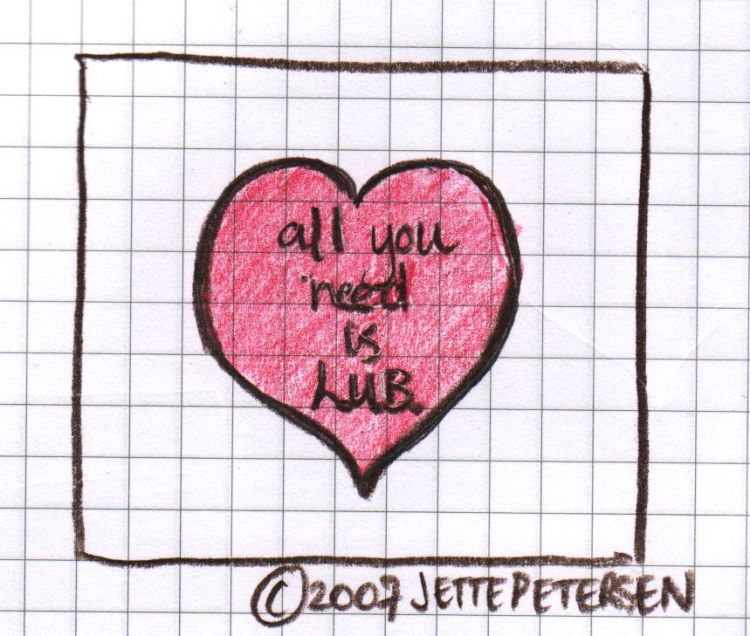 all you
need
is
LUB.
©2007 JETTE PETERSEN